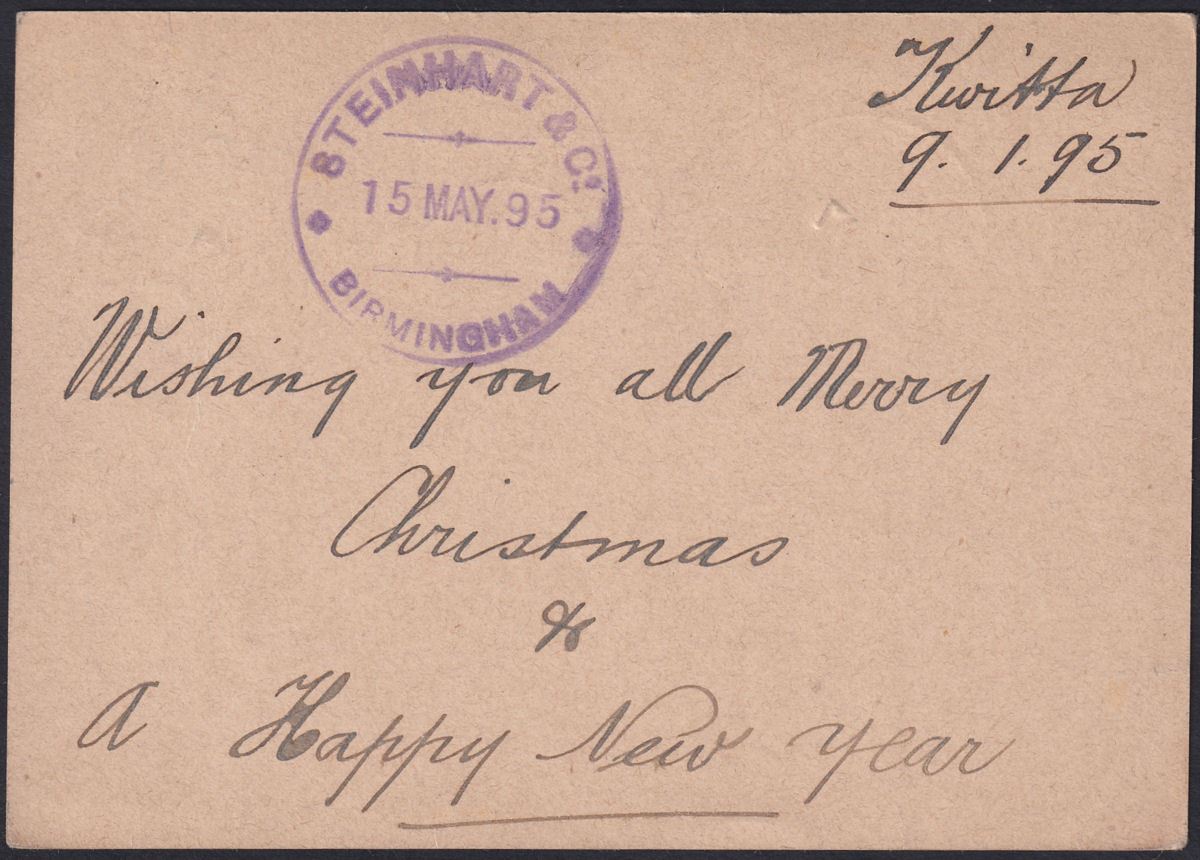 Kwitta
9. 1. 95
STEINHART & Co.
15 MAY. 95
BIRMINGHAM
Wishing you all Merry
Christmas
&
A Happy New Year